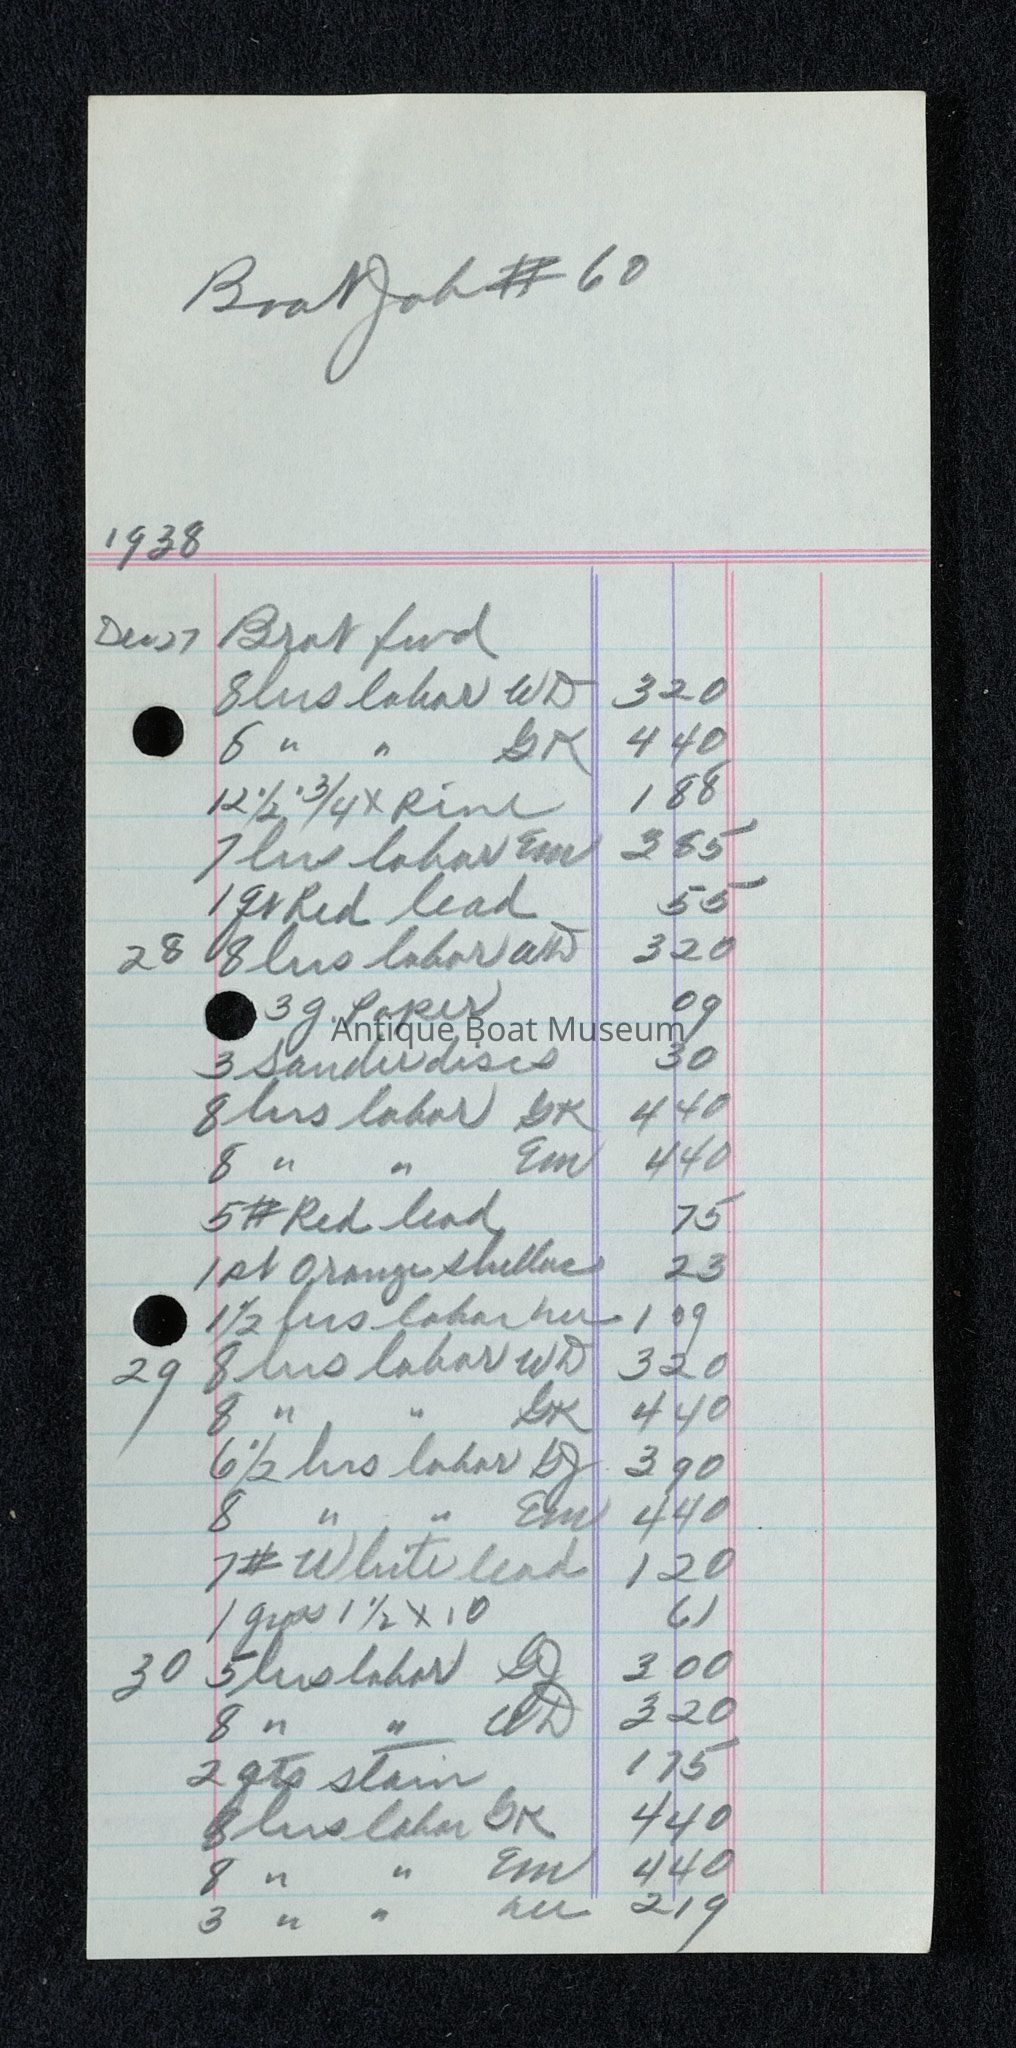 Boat Job # 60
1938
Dec 27 Brot fwd
8 hrs labor WD 3 20
8 " " GK 4 40
12 1/2 ' 3/4 x Pine 1 88
7 hrs labor Em 3 85
1 qt Red lead 55
28 8 hrs labor WD 3 20
3 g. Paper 09
Antique Boat Museum
3 Sander discs 30
8 hrs labor GK 4 40
8 " " Em 4 40
5 # Red lead 75
1 pt Orange Shellac 23
1 1/2 hrs labor 1 09
29 8 hrs labor WD 3 20
8 " " GK 4 40
6 1/2 hrs labor DJ 3 90
8 " " Em 4 40
7 # White lead 1 20
1 gross 1 1/2 x 10 61
30 5 hrs labor DJ 3 00
8 " " WD 3 20
2 qts stain 1 75
8 hrs labor GK 4 40
8 " " Em 4 40
3 " " 2 19